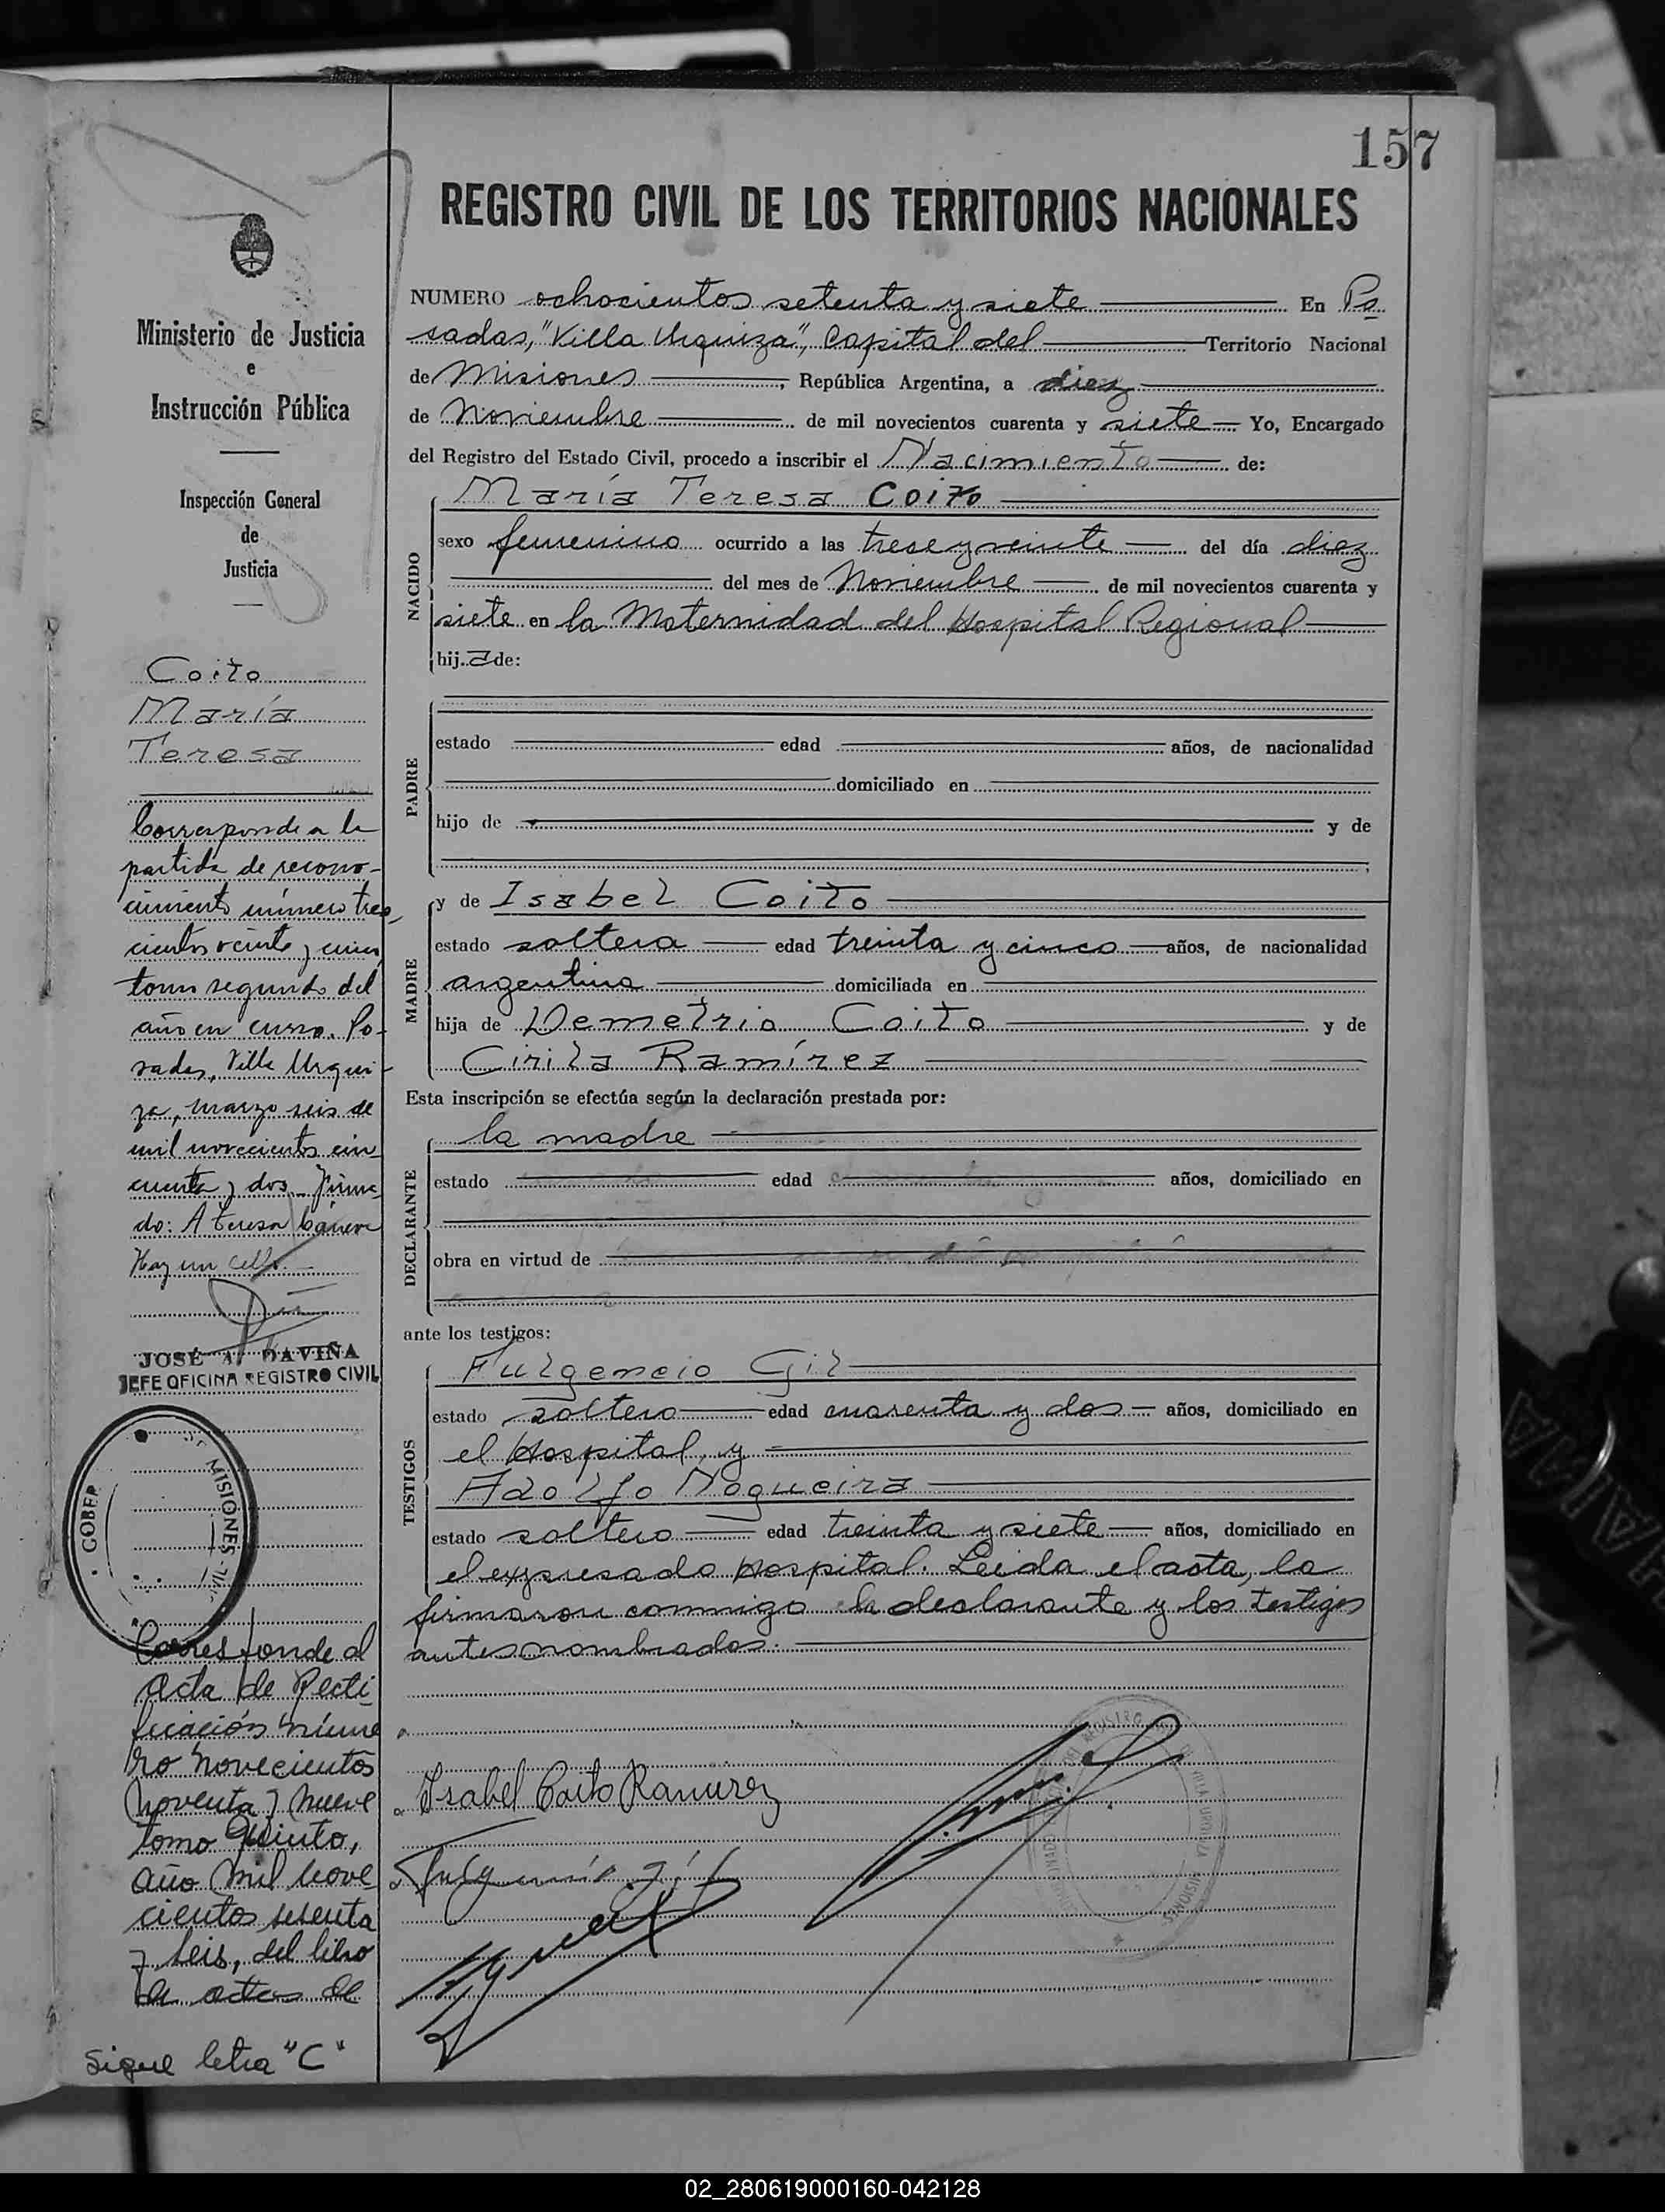 157
REGISTRO CIVIL DE LOS TERRITORIOS NACIONALES
NUMERO ochocientos setenta y siete En Po
sadas, "Villa Urquiza", Capital del Territorio Nacional
de Misiones, República Argentina, a diez
de Noviembre de mil novecientos cuarenta y siete Yo, Encargado
del Registro del Estado Civil, procedo a inscribir el Nacimiento de:
NACIDO
María Teresa Coito
sexo femenino ocurrido a las trese y veinte del día diez
del mes de Noviembre de mil novecientos cuarenta y
siete en la Maternidad del Hospital Regional
hij a de:
PADRE
estado edad años, de nacionalidad
domiciliado en
hijo de y de
MADRE
y de Isabel Coito
estado soltera edad treinta y cinco años, de nacionalidad
argentina domiciliada en
hija de Demetrio Coito y de
Cirila Ramírez
Esta inscripción se efectúa según la declaración prestada por:
DECLARANTE
la madre
estado edad años, domiciliado en
obra en virtud de
ante los testigos:
TESTIGOS
Fulgencio Gil
estado soltero edad cuarenta y dos años, domiciliado en
el Hospital, y
Adolfo Nogueira
estado soltero edad treinta y siete años, domiciliado en
el expresado Hospital. Leida el acta, la
firmaron conmigo la declarante y los testigos
antes nombrados.
Isabel Coito Ramirez
Ministerio de Justicia
e
Instrucción Pública
Inspección General
de
Justicia
Coito
María
Teresa
Corresponde a la
partida de recono-
cimiento número tres
cientos veinte y cinco
tomo segundo del
año en curso. Po-
sadas, Villa Urqui-
za, marzo seis de
mil novecientos cin
cuenta y dos. Firma
do: A Teresa
Hay un sello.
JOSÉ A. DAVIÑA
JEFE OFICINA REGISTRO CIVIL
GOBER MISIONES
Corresponde al
Acta de Recti
ficación núme
ro novecientos
noventa y nueve
tomo Quinto,
año mil nove
cientos sesenta
y seis, del libro
de actas de
Sigue letra "C"
02_280619000160-042128